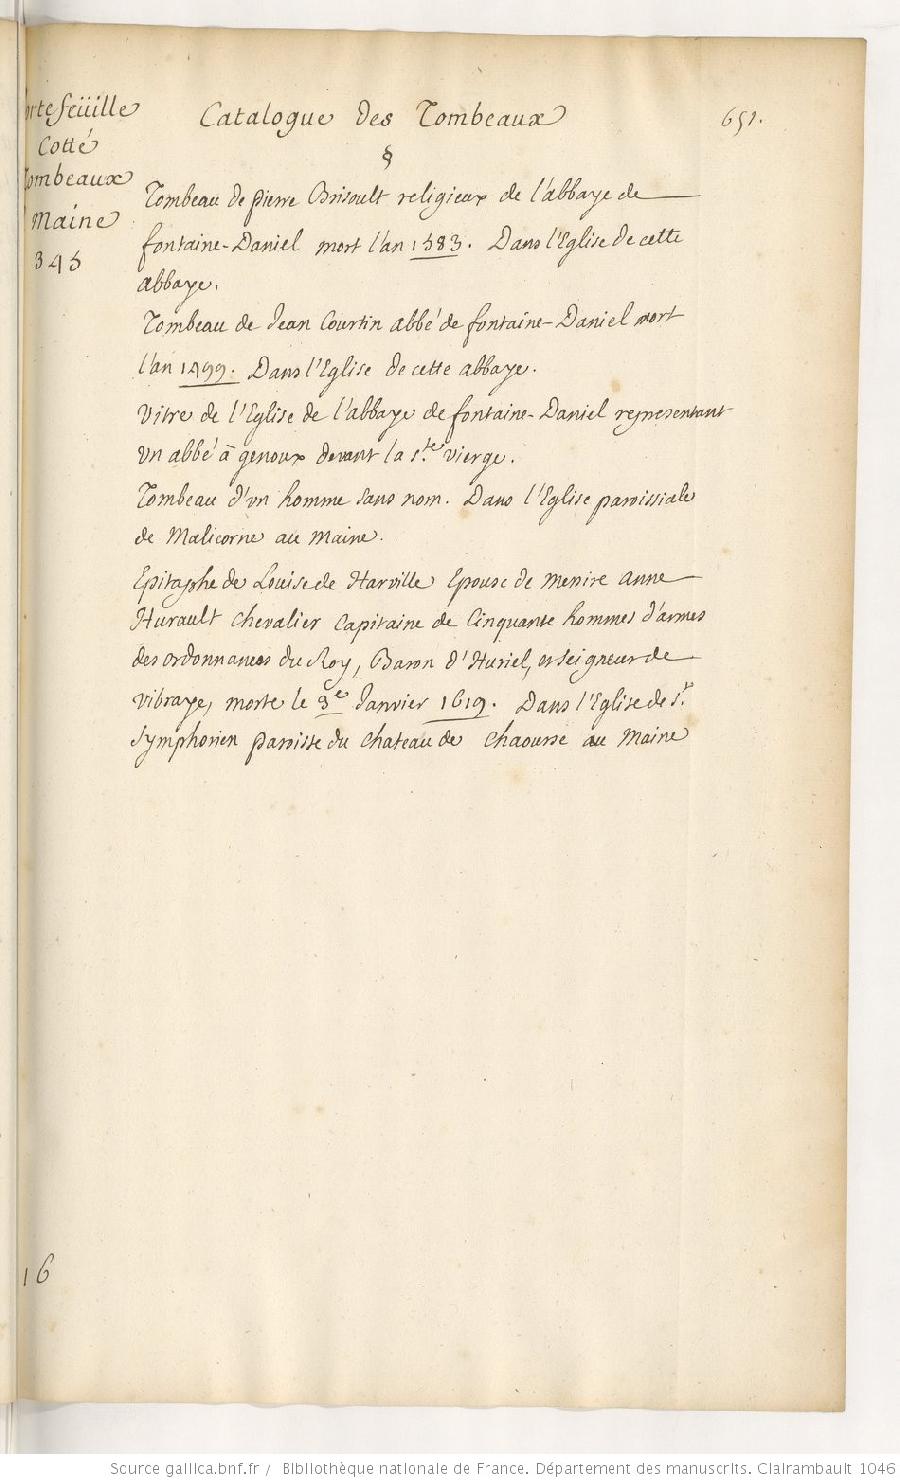 ortefeüille
Cotté
Tombeaux
Maine
345
Catalogue des Tombeaux
651.
§
Tombeau de pierre Brisoult religieux de l'abbaye de
fontaine-Daniel mort l'an 1583. Dans l'Eglise de cette
abbaye.
Tombeau de Jean Courtin abbé de fontaine-Daniel mort
l'an 1499. Dans l'Eglise de cette abbaye.
Vitre de l'Eglise de l'abbaye de fontaine-Daniel representant
Vn abbé à genoux devant la ste vierge.
Tombeau d'vn homme sans nom. Dans l'Eglise paroissiale
de Malicorne au Maine.
Epitaphe de Louise de Harville Epouse de Messire Anne
Hurault Chevalier Capitaine de Cinquante hommes d'armes
des ordonnances du Roy, Baron d'Huriel, et Seigneur de
vibraye, morte le 3e Janvier 1619. Dans l'Eglise de St
Symphorien paroisse du Chateau de Chaourse au Maine
16
Source gallica.bnf.fr / Bibliothèque nationale de France. Département des manuscrits. Clairambault 1046